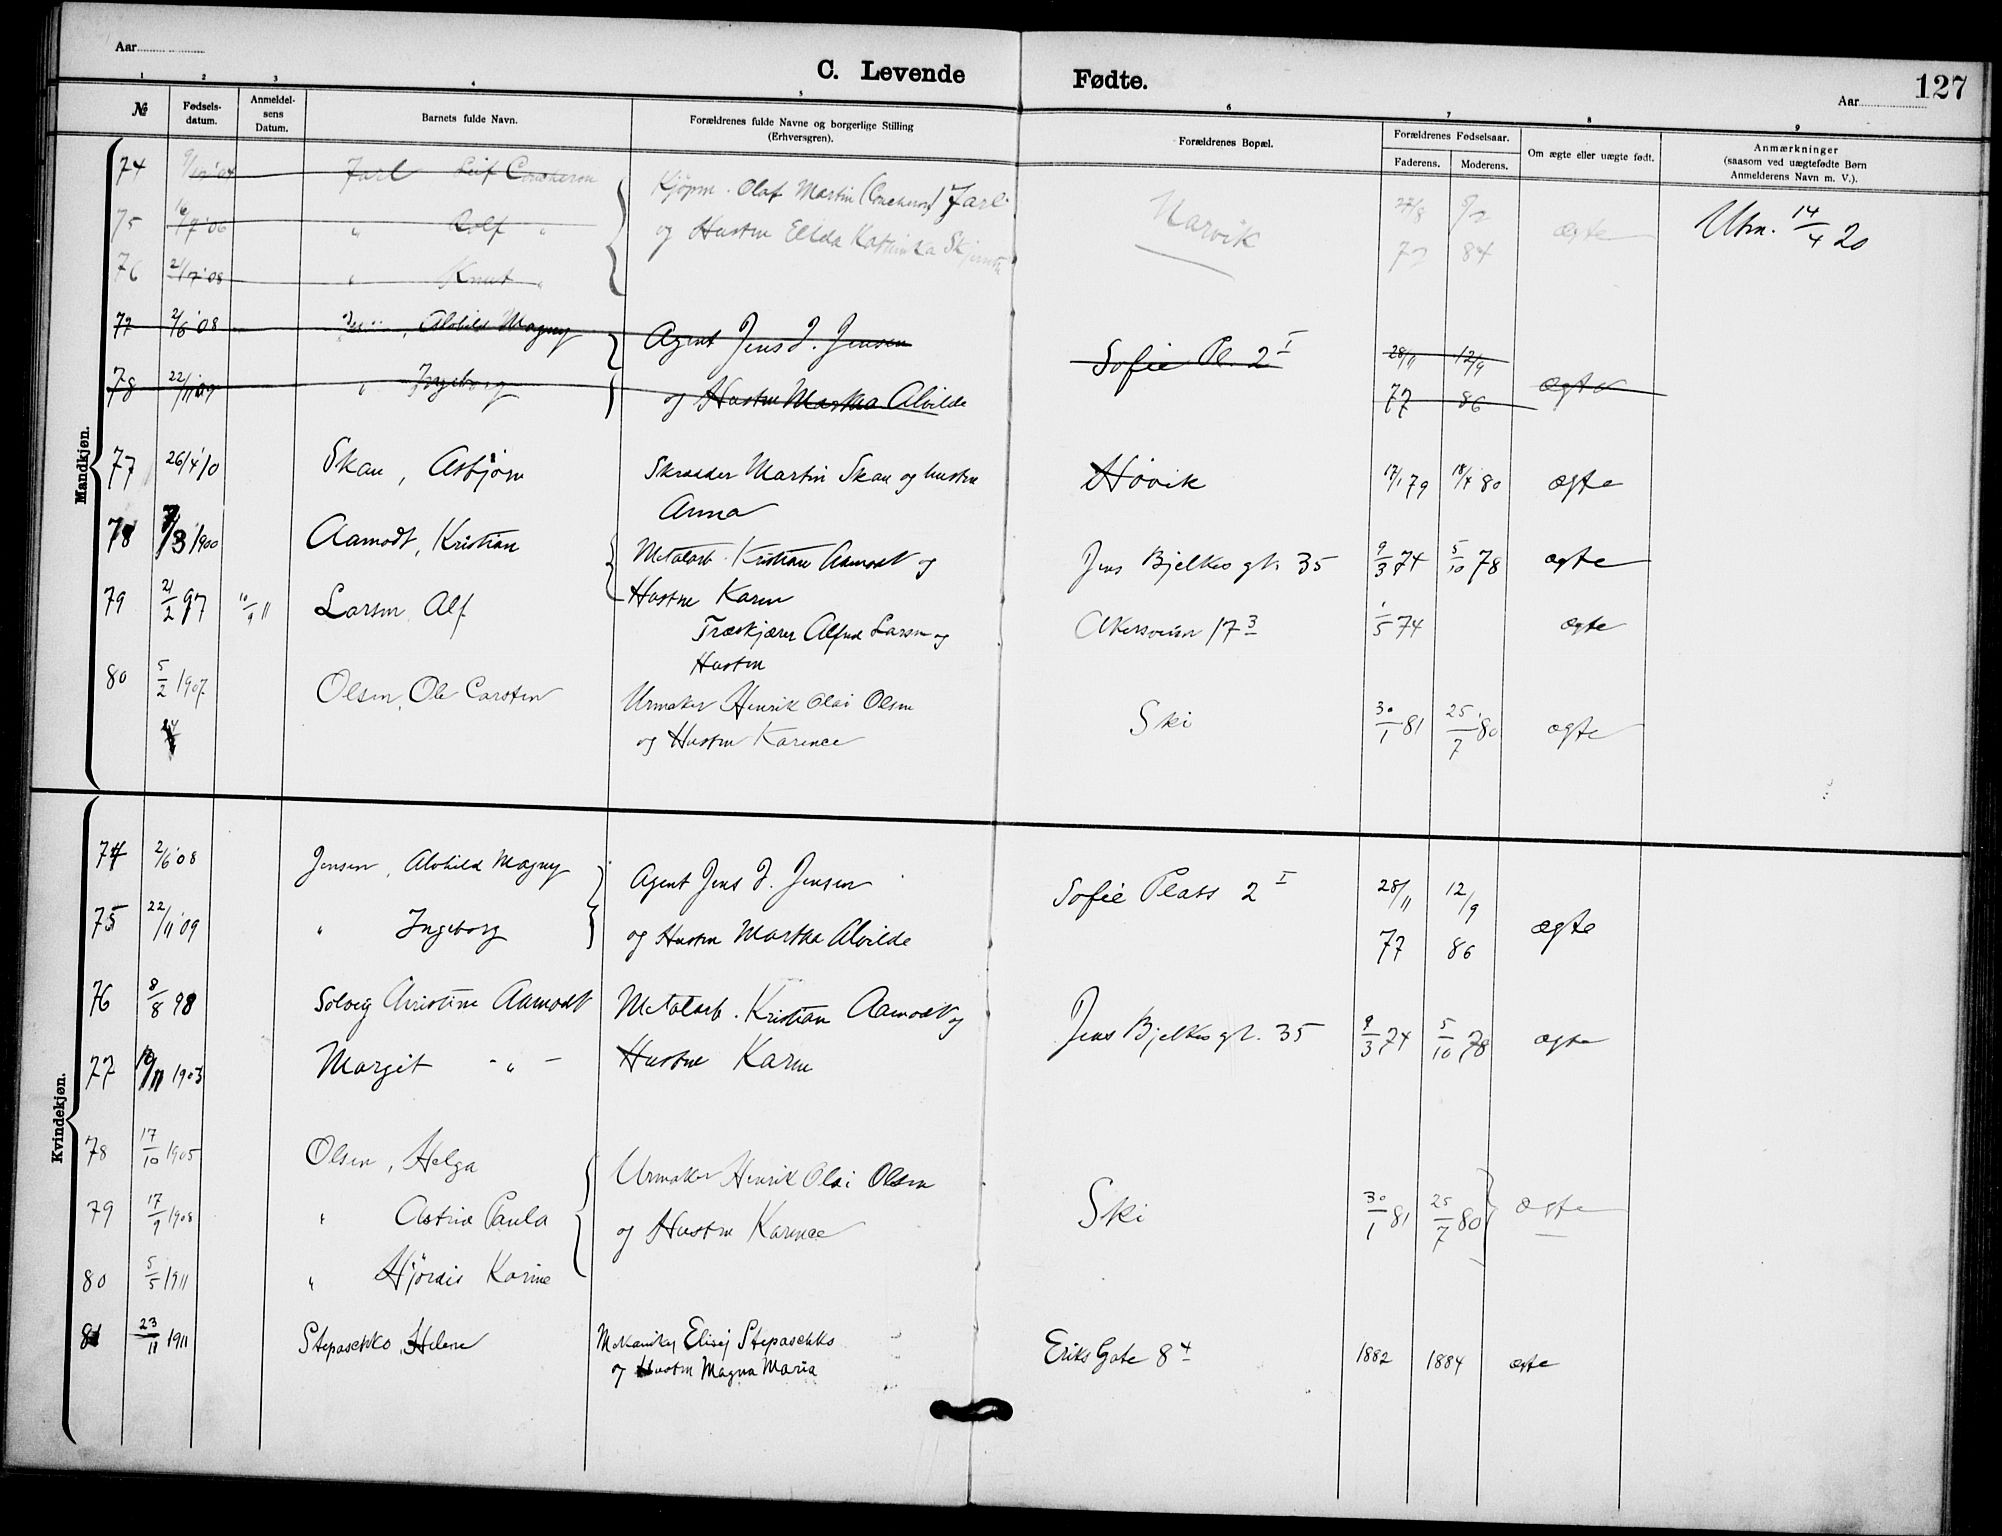 Aar
C. Levende Fødte.
Aar
127
1 2 3 4 5 6 7 8 9
№
Fødsels-
datum.
Anmeldel-
sens
Datum.
Barnets fulde Navn.
Forældrenes fulde Navne og borgerlige Stilling
(Erhversgren).
Forældrenes Bopæl.
Forældrenes Fødselsaar.
Faderens.
Moderens.
Om ægte eller uægte født.
Anmærkninger
(saasom ved uægtefødte Børn
Anmelderens Navn m. V.).
Mandkjøn.
74 Jarl Leif Concheron Kjøpm. Olaf Martin (Concheron) Jarl
75 16/7 '06 " Rolf " og Hustru Ellda Kathinka Narvik 72 84 ægte Utm. 14/4 20
76 2/7 '08 " Knut "
77 2/6 '08 Alvhild Magny Agent Jens J. Jensen Sofie Pl. 2 I 28/11 12/9
78 22/11 09 " Ingeborg og Hustru Martha Alvilde 77 86 ægte
77 26/4 10 Skau, Asbjørn Skrædder Martin Skau og hustru Høvik 17/1 79 18/4 80 ægte
Anna
78 7/3 1900 Aamodt, Kristian Metalarb. Kristian Aamodt og Jens Bjelkes gt. 35 9/3 74 5/10 78 ægte
Hustru Karen
79 21/2 97 10/9 11 Larsen, Alf Træskjærer Alfred Larsen og Akersveien 17 3 1/5 74 ægte
Hustru
80 5/2 1907 Olsen, Ole Carsten Urmaker Henrik Olai Olsen Ski 30/1 81 25/7 80 ægte
og Hustru Karence
Kvindekjøn.
74 2/6 '08 Jensen, Alvhild Magny Agent Jens J. Jensen Sofie Plass 2 I 28/11 12/9
75 22/11 '09 " Ingeborg og Hustru Martha Alvilde 77 86 ægte
76 8/8 98 Solveig Christine Aamodt Metalarb. Kristian Aamodt og Jens Bjelkes gt. 35 9/3 74 5/10 78 ægte
77 10/11 1903 Margit - " - Hustru Karen
78 17/10 1905 Olsen, Helga Urmaker Henrik Olai Olsen
79 17/9 1908 " Astrid Paula og Hustru Karence Ski 30/1 81 25/7 80 ægte
80 5/5 1911 " Hjørdis Karine
81 23/11 1911 Stepaschko, Helene Mekaniker Elisej Stepaschko Eriks Gate 8 4 1882 1884 ægte
og Hustru Magna Maria